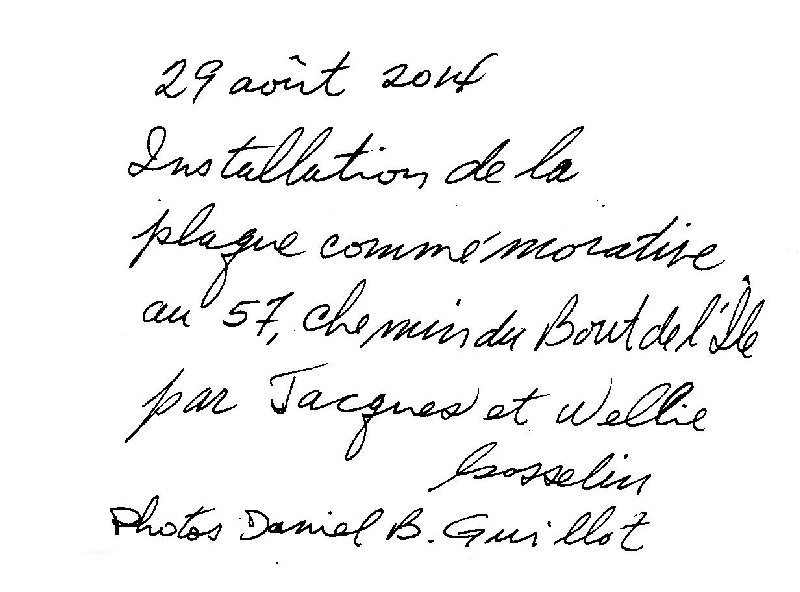 29 août 2014
Installation de la
plaque commémorative
au 57, chemin du Bout de l'Île
par Jacques et Wellie
Gosselin
Photos Daniel B. Guillot